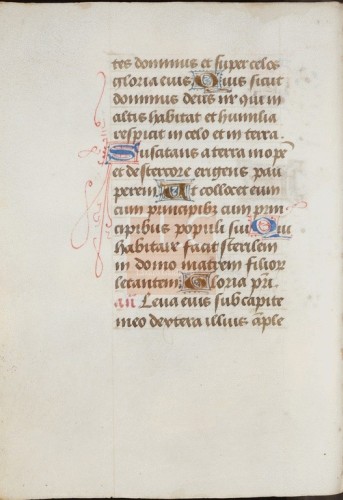 tes dominus et super celos
gloria eius Quis sicut
dominus deus nr qui in
altis habitat et humilia
respicit in celo et in terra.
Suscitans a terra inopē
et de stercore erigens pau
perem Ut collocet eum
cum principibꝫ cum prin
cipibus populi sui Qui
habitare facit sterilem
in domo matrem filior
letantem Gloria pri.
añ Leva eius sub capite
meo dextera illius āple